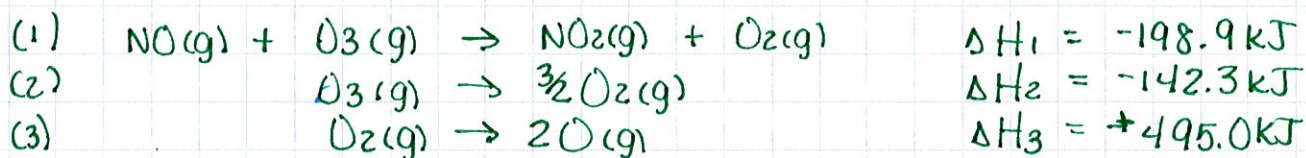 (1) NO(g) + O3(g) → NO2(g) + O2(g) ΔH1 = -198.9 kJ
(2) O3(g) → 3/2 O2(g) ΔH2 = -142.3 kJ
(3) O2(g) → 2O(g) ΔH3 = +495.0 KJ